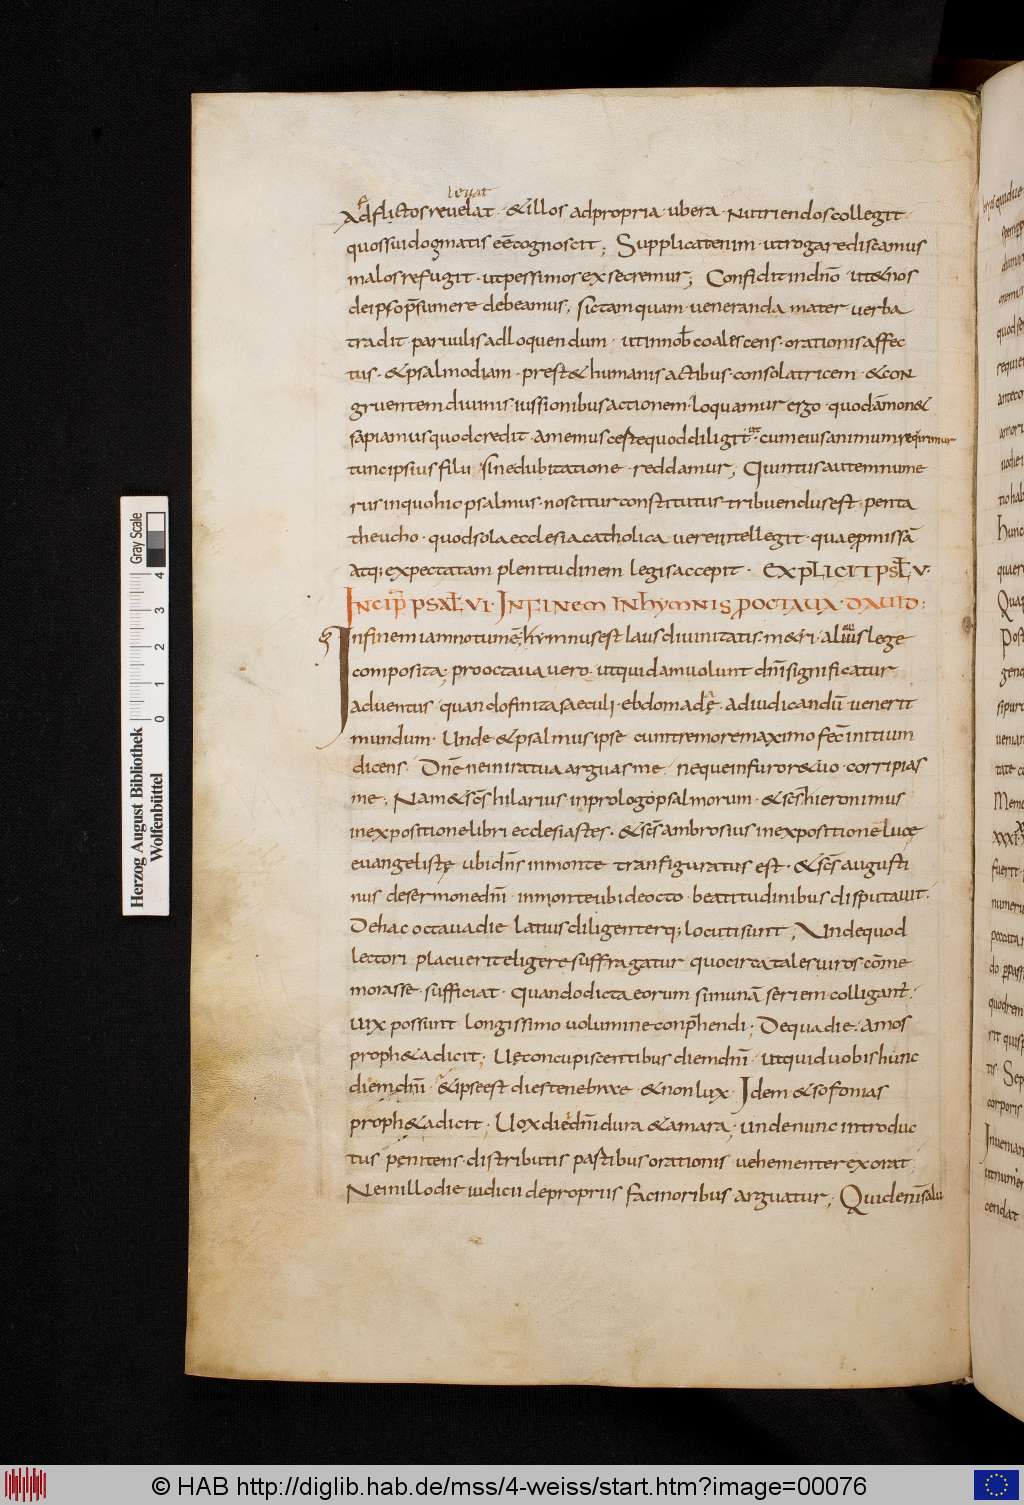 Adflictos reuelat · & illos ad propria · ubera · nutriendos collegit
leuat
quos sui dogmatis eē cognoscit ; Supplicat enim · ut rogare discamus
malos refugit · ut pessimos exsecremur ; Confidit in dnō · ut & nos
de ipso p̄sumere debeamus ; sic tamquam · ueneranda mater uerba
tradit paruulis ad loquendum · ut in nob̄ coalescens · orationis affec
tus · & psalmodiam · prest& humanis actibus · consolatricem · & con
gruentem diuinis iussionibus actionem · loquamur ergo · quod āmon&
sapiamus quod credit · amemus certe quod diligit · cum eius animum requirimur
tunc ipsius filii sine dubitatione · reddamur ; Quintus autem nume
rus in quo hic psalmus · noscitur constitutus tribuendus est · penta
theucho · quod sola ecclesia catholica uere intellegit · quae p̄missā
atq; expectatam plenitudinem legis accepit · EXPLICIT PSL̄ V ·
INCIP̄ PSAL̄ VI · IN FINEM IN HYMNIS P OCTAUA · DAUID :
In finem iam notum ē ; hymnus est laus diuinitatis · m&ri · aliqua lege
composita ; pro octaua uero · ut quidam uolunt dnī significatur
aduentus · quando finita saeculi · ebdomade · ad iudicandū uenerit
mundum · Unde · & psalmus ipse cum tremore maximo fec̄ initium
dicens · Dnē ne in ira tua arguas me neque in furor& uo · corripias
me ; Nam & scs̄ hilarius in prologo psalmorum · & scs̄ hieronimus
in expositione libri ecclesiastes · & scs̄ ambrosius in expositione lucę
euangelistę ubi dns̄ in monte tranfiguratus est · & scs̄ augusti
nus de sermone dnī · in monte ubi de octo · beatitudinibus disputauit ·
De hac octaua die latius diligenterq; locuti sunt ; Unde quod
lectori placuerit eligere suffragatur quo circa tales uiros cōme
morasse sufficiat · Quando dicta eorum si in unā seriem colligant̄ ·
uix possunt longissimo uolumine conp̄hendi ; De qua die · amos
proph&a dicit ; Uę concupiscentibus diem dnī · ut quid uobis hunc
diem dnī · & ipse est dies tenebrae · & non lux · Idem & sofonias
proph&a dicit ; Uox diei dnī dura & amara · unde nunc introduc
tus pęnitens · distributis partibus orationis uehementer exorat
Ne in illo die iudicii de propriis facinoribus arguatur ; Quid enim salu
Herzog August Bibliothek
Wolfenbüttel
Gray Scale
0 1 2 3 4
© HAB http://diglib.hab.de/mss/4-weiss/start.htm?image=00076